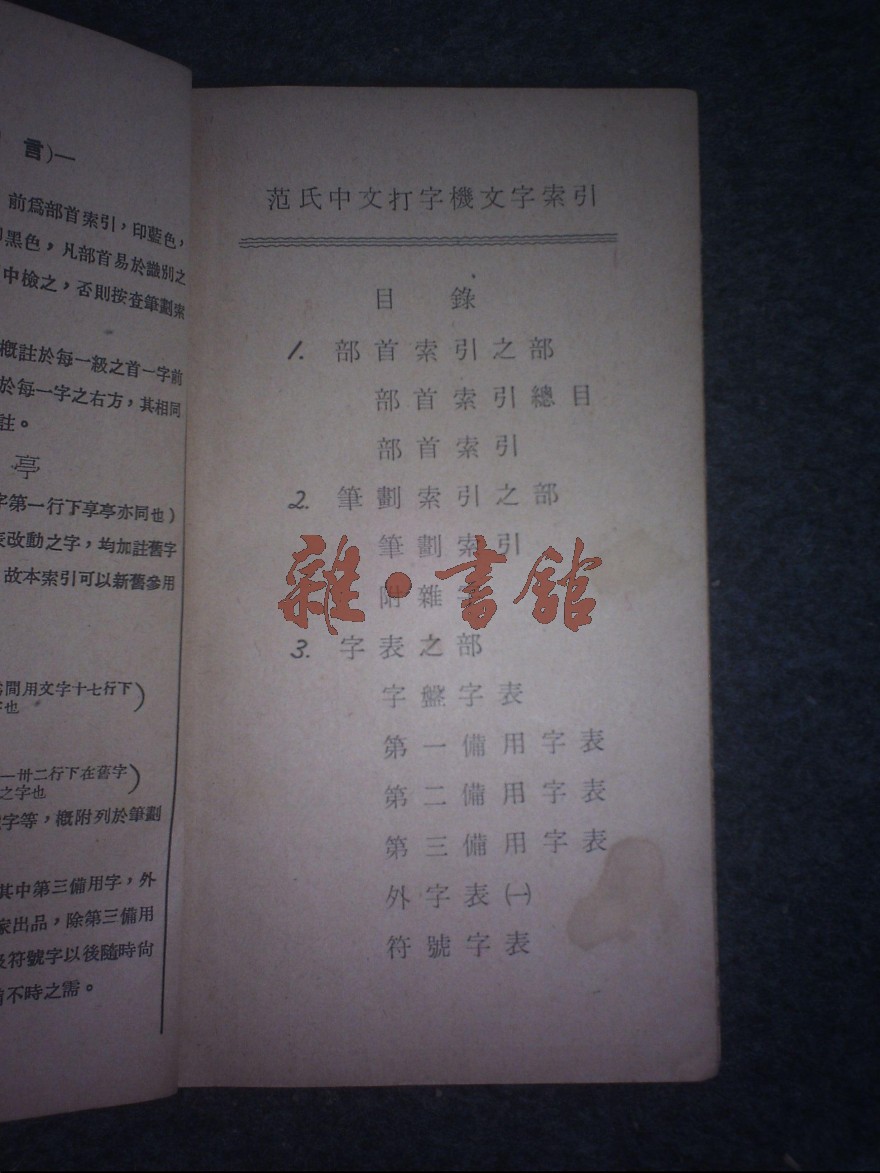 言)—
前爲部首索引，印藍色，
黑色，凡部首易於識別之
中檢之，否則按查筆劃索
概註於每一級之首一字前
於每一字之右方，其相同
註。
亭
字第一行下享亭亦同也)
改動之字，均加註舊字
故本索引可以新舊參用
間用文字十七行下
也)
—卅二行下在舊字
之字也)
字等，概附列於筆劃
其中第三備用字，外
家出品，除第三備用
及符號字以後隨時尙
不時之需。
范氏中文打字機文字索引
目錄
1. 部首索引之部
部首索引總目
部首索引
2. 筆劃索引之部
筆劃索引
附雜字
3. 字表之部
字盤字表
第一備用字表
第二備用字表
第三備用字表
外字表㈠
符號字表
雜·書館